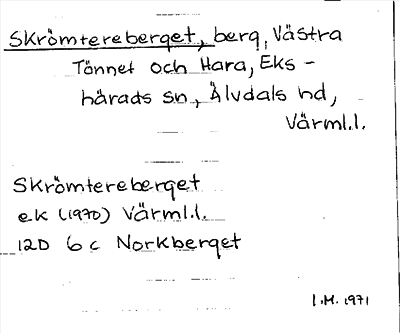 Skrömtereberget, berg, Västra
Tönnet och Hara, Eks-
härads sn, Älvdals hd,
Värml.l.
Skrömtereberget
ek (1970) Värml.l.
12D 6c Norkberget
I.H. 1971